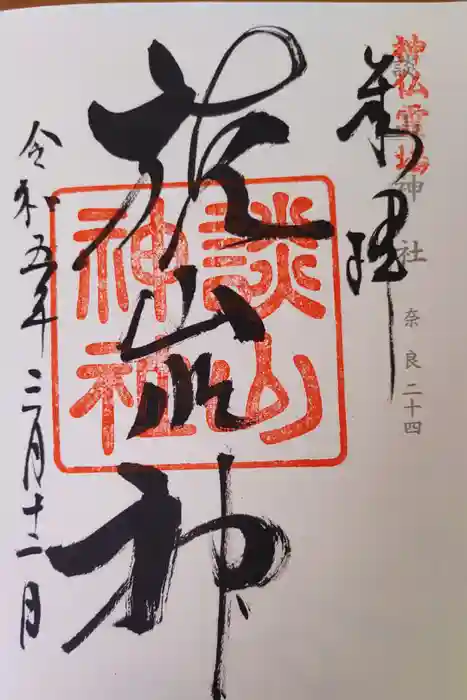 神仏霊場
談山神社 奈良二十四
奉拝
談山神社
神
令和五年二月十二日